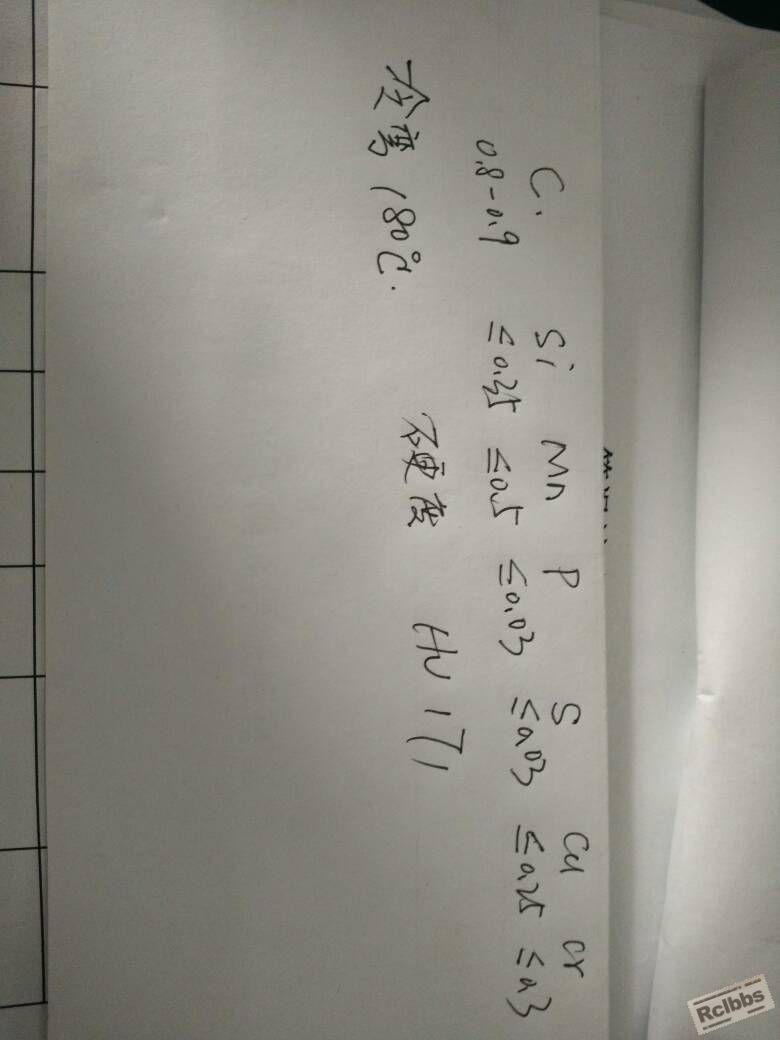 C. Si Mn P S Cu Cr
0.8-0.9 ≤0.35 ≤0.5 ≤0.03 ≤0.03 ≤0.25 ≤0.3
冷弯 180℃. 硬度 HV 171
Rclbbs